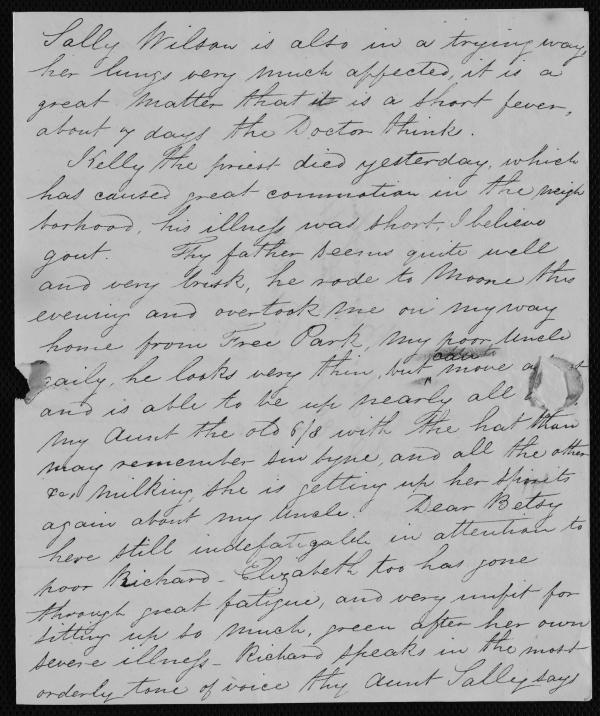 Sally Wilson is also in a trying way,
her lungs very much affected, it is a
great matter that it is a short fever,
about 7 days the Doctor thinks.
Kelly the priest died yesterday, which
has caused great commotion in the neigh
borhood, his illness was short, I believe
gout. Thy father seems quite well
and very brisk, he rode to Moone this
evening and overtook me on my way
home from Free Park, my poor Uncle
daily, he looks very thin, but can move a
and is able to be up nearly all
my Aunt the old 6/8 with the hat thou
may remember sin syne, and all the other
&c, milking, she is getting up her spirits
again about my Uncle. Dear Betsy
here still indefatigable in attention to
poor Richard - Elizabeth too has gone
through great fatigue, and very unfit for
sitting up so much, green after her own
severe illness - Richard speaks in the most
orderly tone of voice thy Aunt Sally says